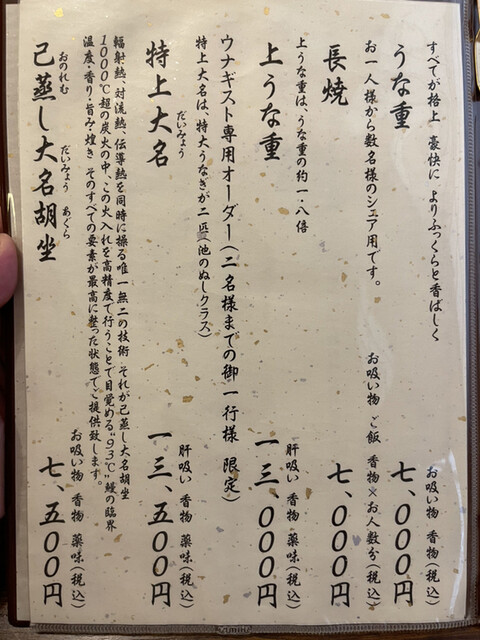 すべてが格上 豪快に よりふっくらと香ばしく
うな重
お吸い物 香物(税込)
七、〇〇〇円
お一人様から数名様のシェア用です。
お吸い物 ご飯 香物×お人数分(税込)
長焼
七、〇〇〇円
上うな重は、うな重の約一・八倍
上うな重
肝吸い 香物 薬味(税込)
一三、〇〇〇円
ウナギスト専用オーダー(二名様までの御一行様 限定)
特上大名は、特大うなぎが二匹(池のぬしクラス)
特上大名
だいみょう
肝吸い 香物 薬味(税込)
一三、五〇〇円
輻射熱、対流熱、伝導熱を同時に操る唯一無二の技術 それが己蒸し大名胡坐
1000℃超の炭火の中、この火入れを高精度で行うことで目覚める"93℃"鰻の臨界
温度・香り・旨み・煌き そのすべての要素が最高に整った状態でご提供致します。
おのれむ だいみょう あぐら
己蒸し大名胡坐
お吸い物 香物 薬味(税込)
七、五〇〇円